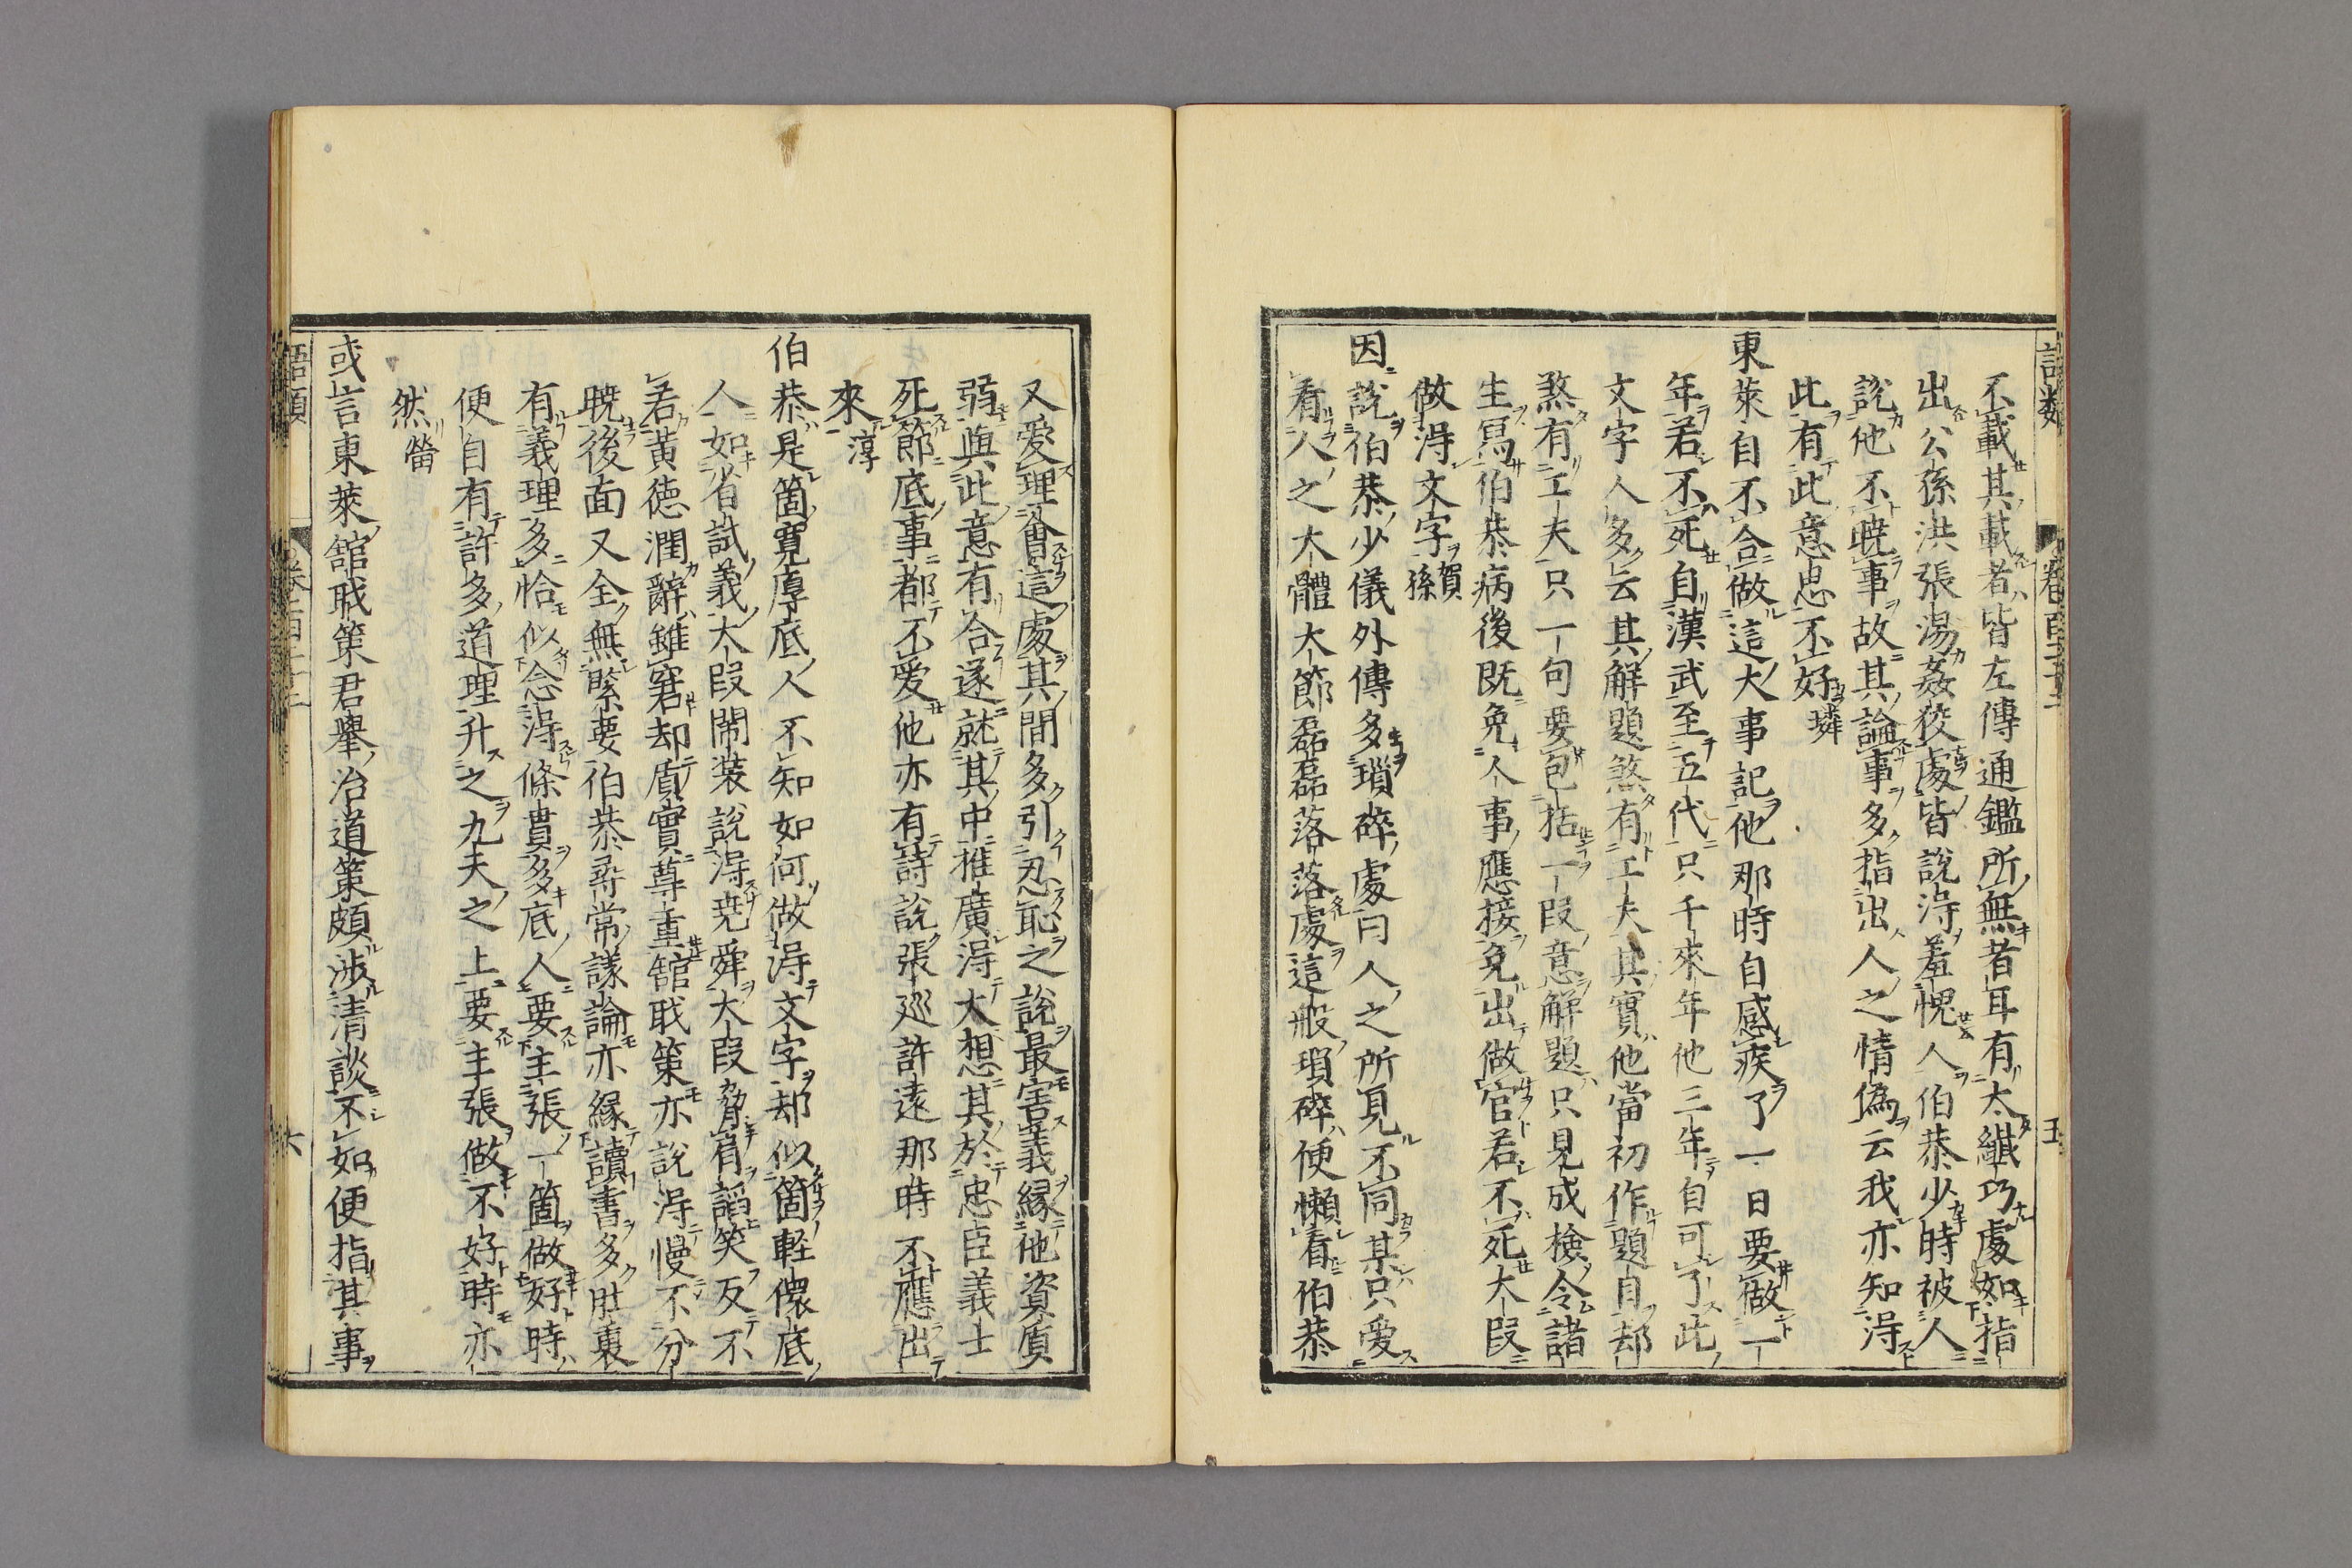 語類 卷百二十二 五
不載其載者皆左傳通鑑所無者耳有太纎巧處如指
出公孫洪張湯姦狡處皆說得羞愧人伯恭少時被人
說他不曉事故其論事多指出人之情偽云我亦知得
此有此意思不好璘
東萊自不合做這大事記他那時自感疾了一日要做一
年若不死自漢武至五代只千來年他三年自可了此
文字人多云其解題煞有工夫其實他當初作題目却
煞有工夫只一句要包括一段意解題只見成檢令諸
生寫伯恭病後既免人事應接免出做官若不死大段
做得文字賀孫
因說伯恭少儀外傳多瑣碎處曰人之所見不同某只愛
看人之大體大節磊磊落落處這般瑣碎便懶看伯恭
又愛理會這處其間多引忍恥之說最害義緣他資質
弱與此意有合遂就其中推廣得大想其於忠臣義士
死節底事都不愛他亦有詩說張巡許遠那時不應出
來淳
伯恭是箇寬厚底人不知如何做得文字却似箇輕儇底
人如省試義大段閙装說得堯舜大段脅肩諂笑反不
若黃德潤辭雖窘却質實尊重舘職策亦說得慢不分
曉後面又全無緊要伯恭尋常議論亦緣讀書多肚裏
有義理多恰似念得條貫多底人要主張一箇做好時
便自有許多道理升之九天之上要主張做不好時亦
然㽦
或言東萊舘職策君舉治道策頗涉清談不如便指其事
語類 卷百二十二 六